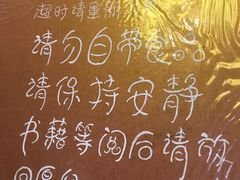 超时请重新
请勿自带食品
请保持安静
书籍等阅后请放
回原